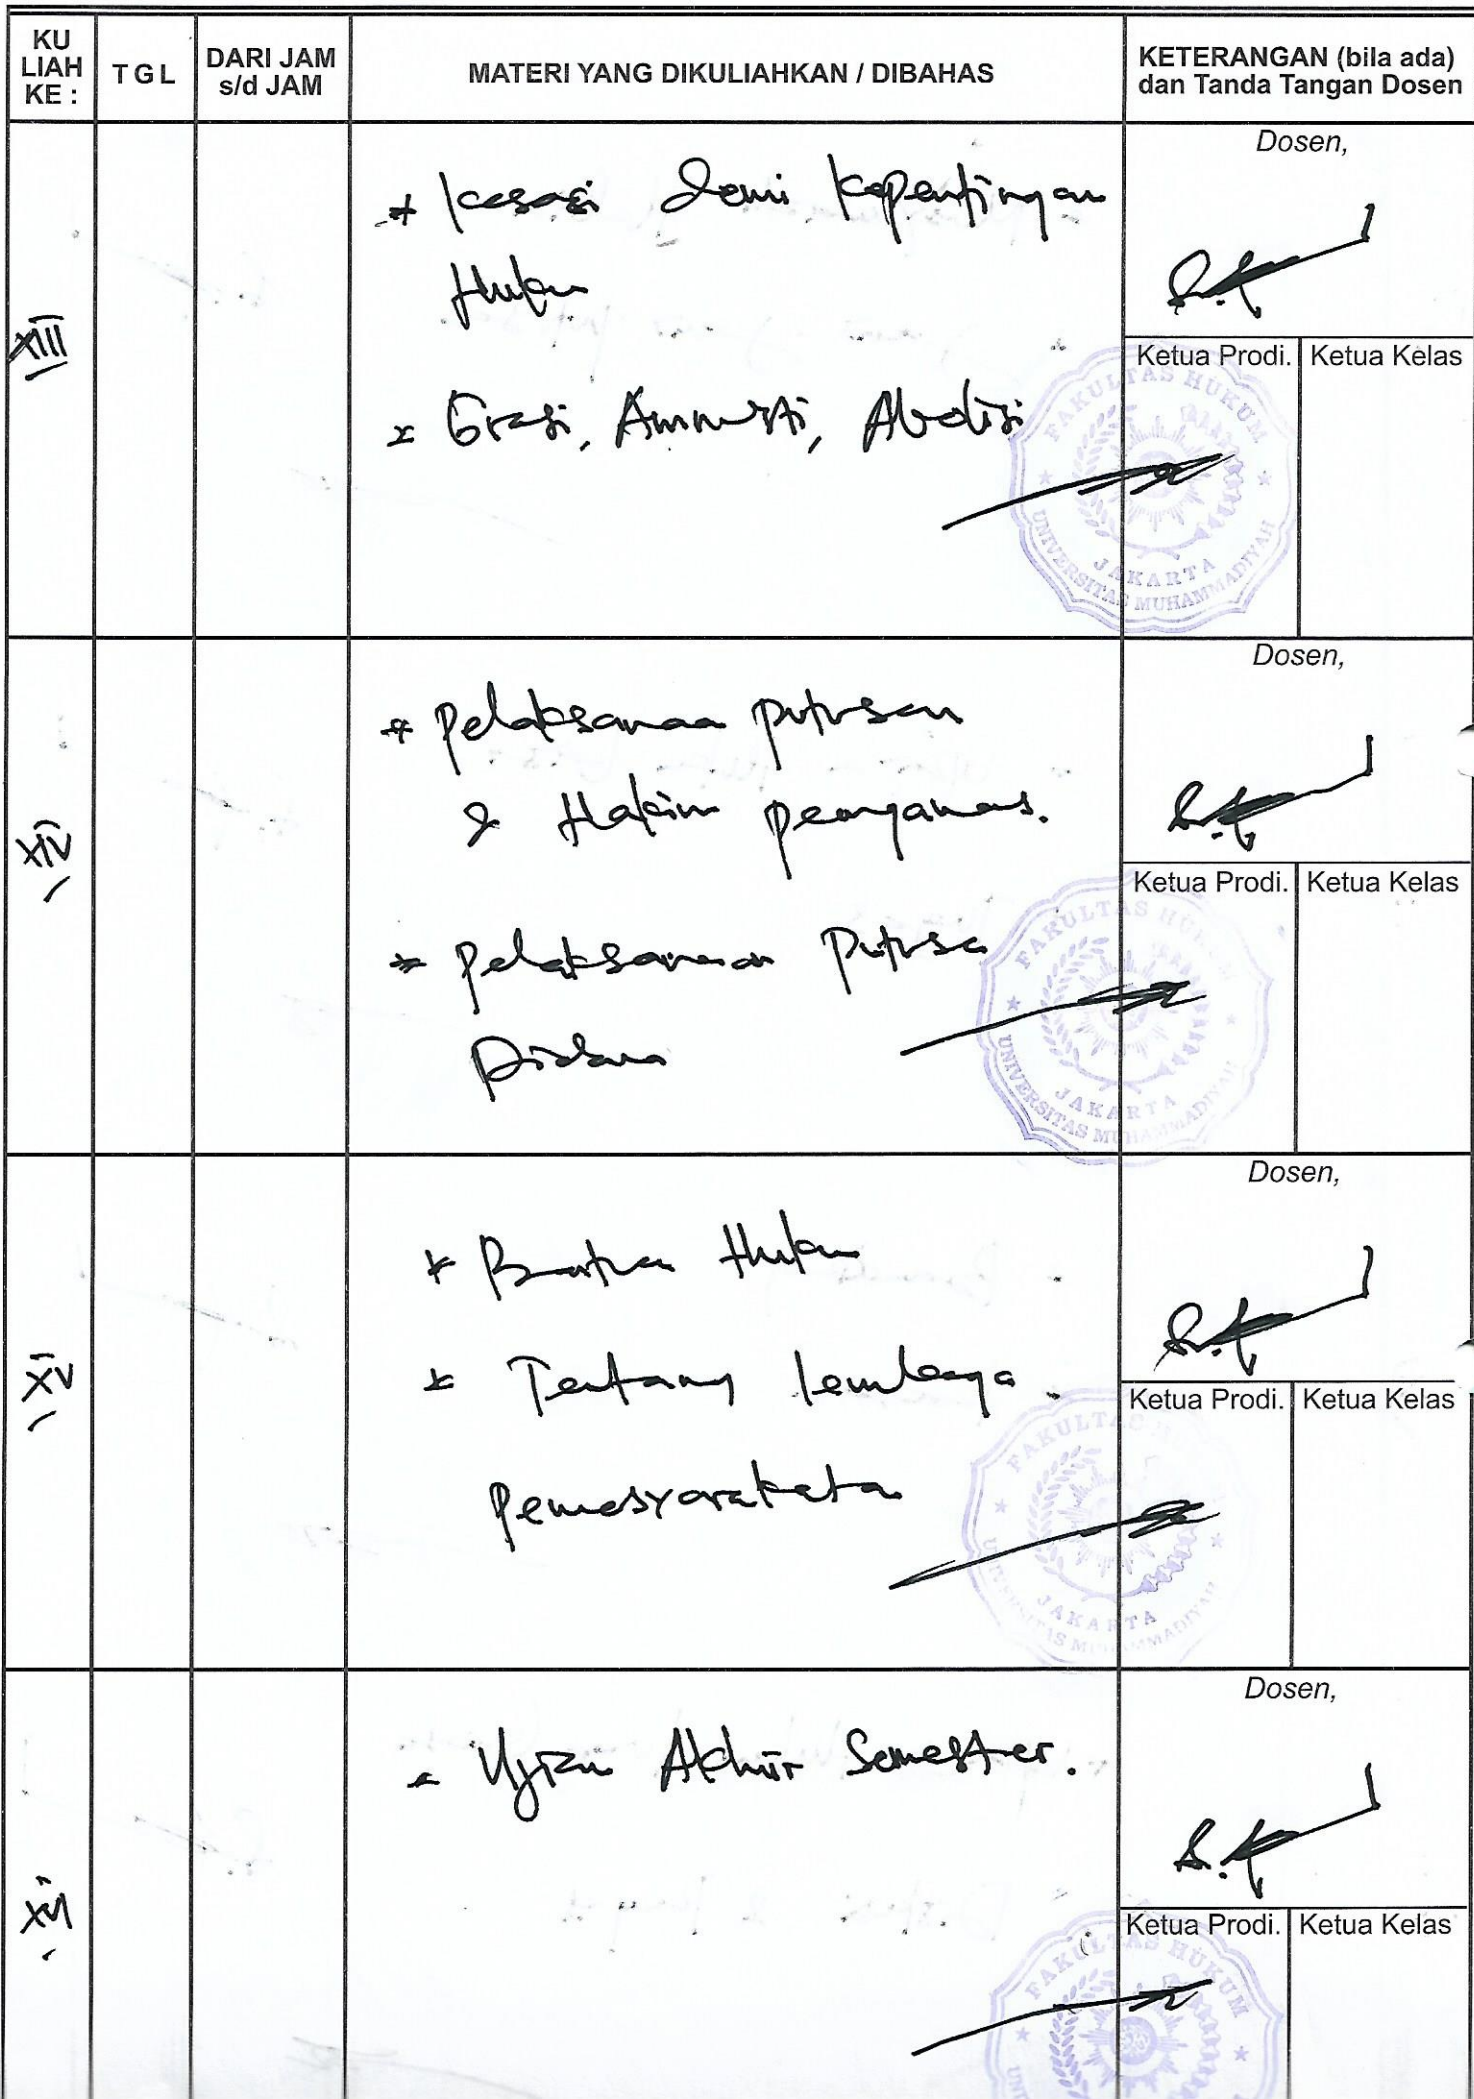 KU LIAH KE :
TGL
DARI JAM s/d JAM
MATERI YANG DIKULIAHKAN / DIBAHAS
KETERANGAN (bila ada) dan Tanda Tangan Dosen
XIII
* Kasasi Demi Kepentingan
Hukum
* Grasi, Amnesti, Abolisi
Dosen,
Ketua Prodi.
Ketua Kelas
FAKULTAS HUKUM
UNIVERSITAS MUHAMMADIYAH
JAKARTA
XIV
* Pelaksanaan putusan
& Hakim pengawas.
* Pelaksanaan Putusan
Pidana
Dosen,
Ketua Prodi.
Ketua Kelas
FAKULTAS HUKUM
UNIVERSITAS MUHAMMADIYAH
JAKARTA
XV
* Bantuan Hukum
* Tentang lembaga
Pemasyarakatan
Dosen,
Ketua Prodi.
Ketua Kelas
FAKULTAS
UNIVERSITAS MUHAMMADIYAH
JAKARTA
XVI
* Ujian Akhir Semester.
Dosen,
Ketua Prodi.
Ketua Kelas
FAKULTAS HUKUM